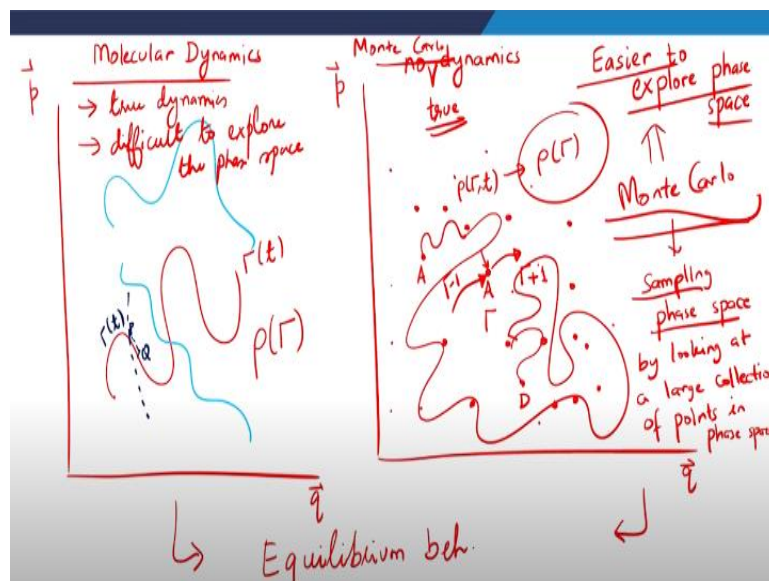 Molecular Dynamics
→ true dynamics
→ difficult to explore
the phase space
p
Γ(t)
Γ(t)
P
Q
ρ(Γ)
q
Monte Carlo
no dynamics
true
p
ρ(Γ,t) → ρ(Γ)
A
Γ-1
A
Γ
Γ+1
D
q
Easier to
explore phase
space
Monte Carlo
Sampling
phase space
by looking at
a large collection
of points in
phase space
Equilibrium beh.